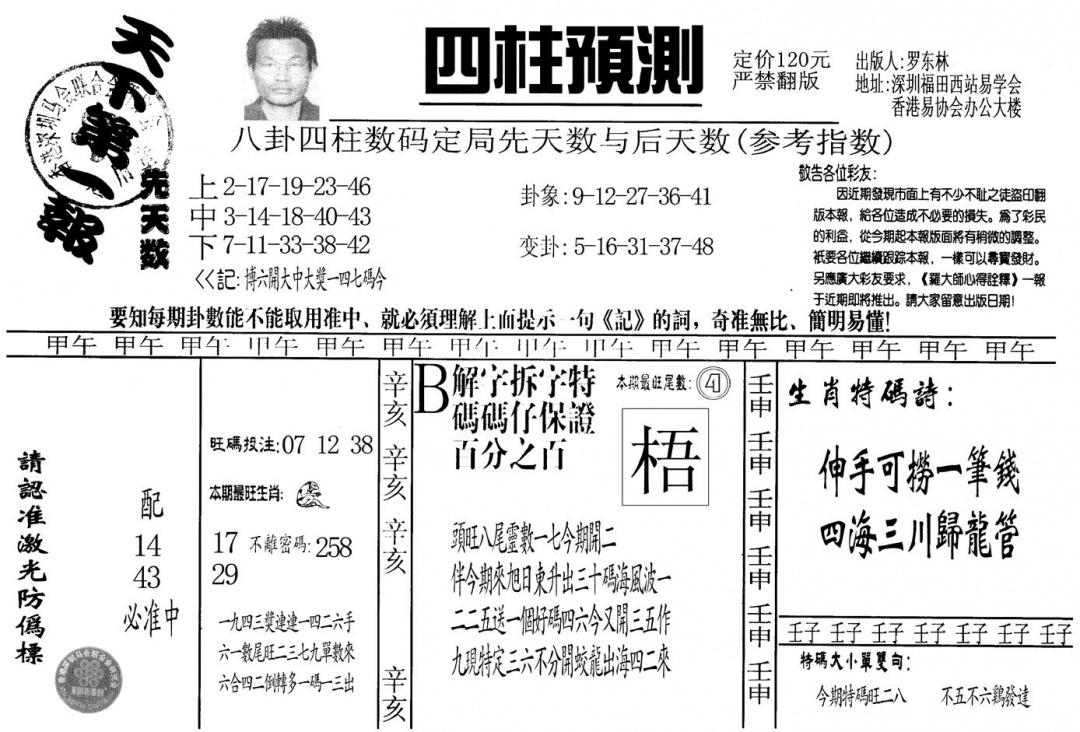 天下第一報
四柱預測
定价120元
严禁翻版
出版人:罗东林
地址:深圳福田西站易学会
香港易协会办公大楼
八卦四柱数码定局先天数与后天数(参考指数)
先天数
上 2-17-19-23-46
中 3-14-18-40-43
下 7-11-33-38-42
<<記:博六開大中大獎一四七碼今
卦象:9-12-27-36-41
变卦:5-16-31-37-48
敬告各位彩友:
因近期發現市面上有不少不耻之徒盜印翻
版本報,給各位造成不必要的損失。爲了彩民
的利益,從今期起本報版面將有稍微的調整。
衹要各位繼續跟踪本報,一樣可以尋寶發財。
另應廣大彩友要求,《羅大師心得詮釋》一報
于近期即將推出。請大家留意出版日期!
要知每期卦數能不能取用准中、就必須理解上面提示一句《記》的詞,奇准無比、簡明易懂!
甲午 甲午 甲午 甲午 甲午 甲午 甲午 甲午 甲午 甲午 甲午 甲午 甲午 甲午 甲午
請認准激光防僞標
配
14
43
必准中
旺碼投注:07 12 38
本期最旺生肖:
17 不離密碼:258
29
一九四三獎連連一四二六手
六一數尾旺二三七九單數來
六合四二倒轉多一碼一三出
辛亥
辛亥
辛亥
辛亥
B
解字拆字特
碼碼仔保證
百分之百
本期最旺尾數:④
梧
頭旺八尾靈數一七今期開二
伴今期來旭日東升出三十碼海風波一
二二五送一個好碼四六今又開三五作
九現特定三六不分開蛟龍出海四二來
壬申
壬申
壬申
壬申
壬申
壬申
生肖特碼詩:
伸手可撈一筆錢
四海三川歸龍管
壬子 壬子 壬子 壬子 壬子 壬子 壬子
特碼大小單雙句:
今期特碼旺二八 不五不六鷄發達